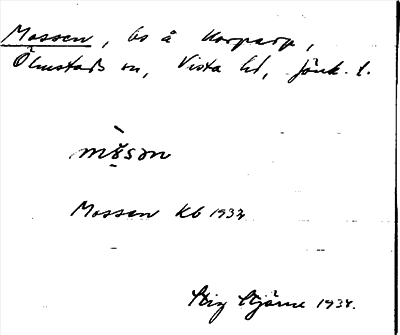 Mossen, ls å Korparp,
Ölmstads sn, Vista hd, Jönk. l.
Mossen Kb 1932
Stig Hjärne 1934.